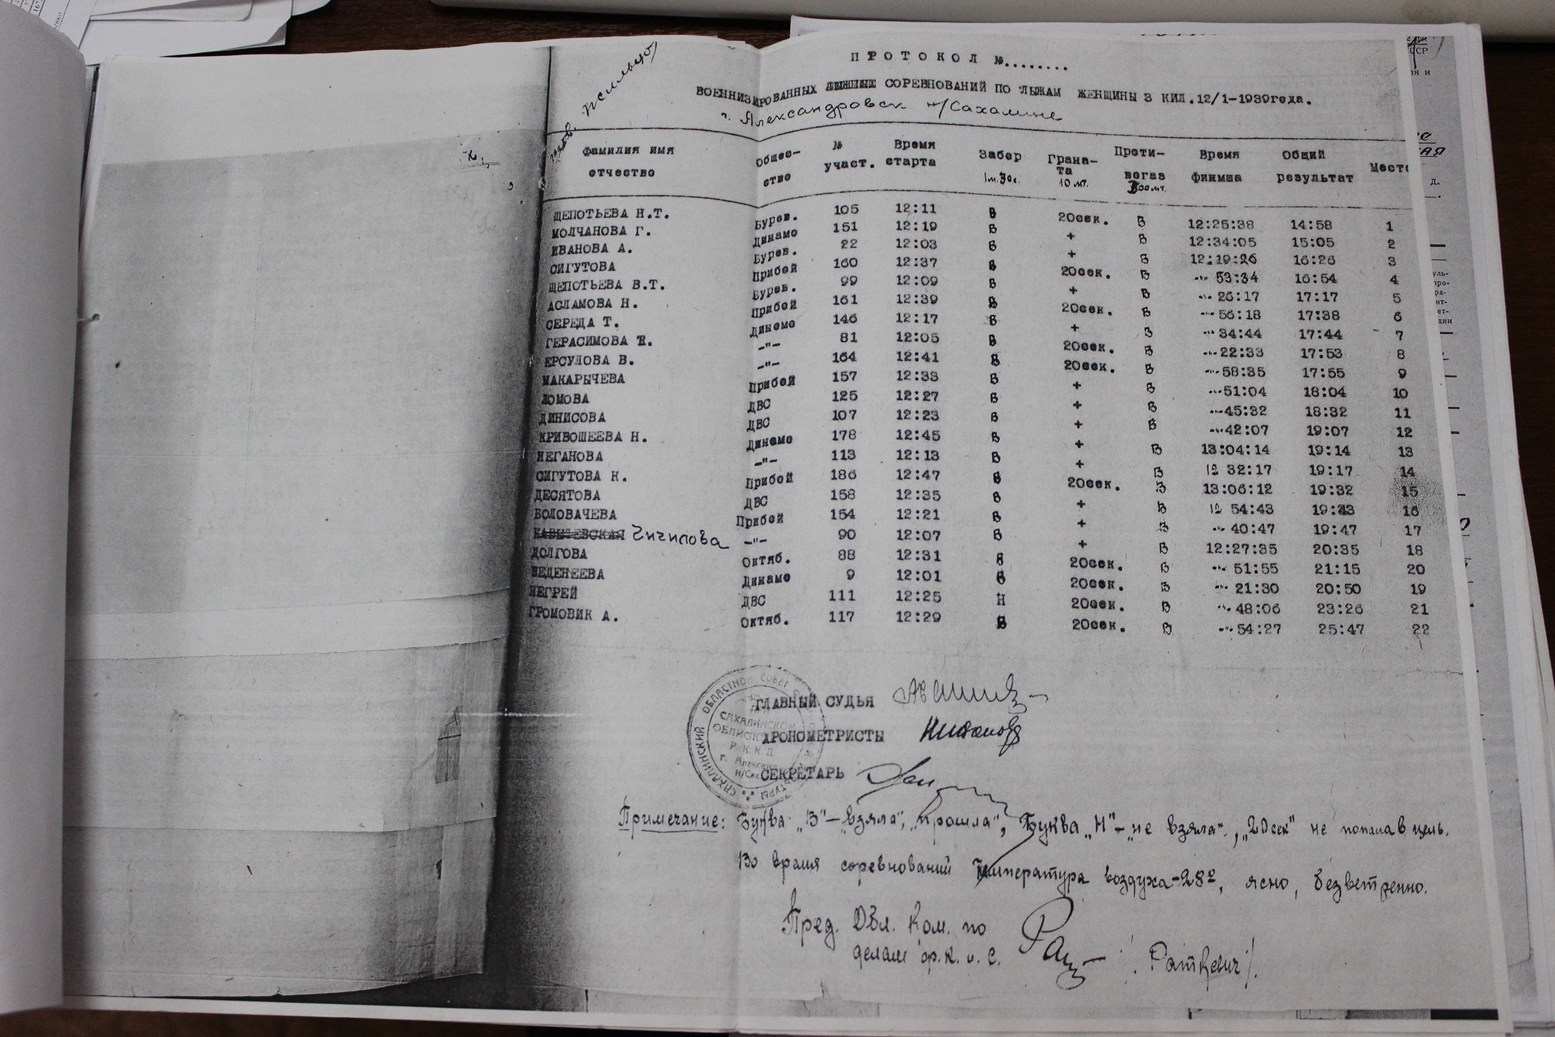 ПРОТОКОЛ №........
ВОЕННИЗИРОВАННЫХ ЛЫЖНЫХ СОРЕВНОВАНИЙ ПО ЛЫЖАМ ЖЕНЩИНЫ 3 КИЛ. 12/1-1939года.
г. Александровск н/Сахалине
Фамилия имя отчество Общес-тво № участ. Время старта Забор 1м.80с. Грана-та 10 мт. Проти-вогаз 300мт. Время финиша Общий результат Место
ЩЕПОТЬЕВА Н.Т. Бурев. 105 12:11 В 20сек. В 12:25:38 14:58 1
МОЛЧАНОВА Г. Динамо 151 12:19 В + В 12:34:05 15:05 2
ИВАНОВА А. Бурев. 22 12:03 В + В 12:19:26 16:26 3
СИГУТОВА Прибой 160 12:37 В 20сек. В 53:34 16:54 4
ЩЕПОТЬЕВА В.Т. Бурев. 99 12:09 В + В 26:17 17:17 5
АСЛАМОВА Н. Прибой 161 12:39 В 20сек. В 56:18 17:38 6
СЕРЕДА Т. Динамо 146 12:17 В + В 34:44 17:44 7
ГЕРАСИМОВА Е. -"- 81 12:05 В 20сек. В 22:33 17:53 8
ЕРСУЛОВА В. -"- 164 12:41 В 20сек. В 58:35 17:55 9
МАКАРЫЧЕВА Прибой 157 12:33 В + В 51:04 18:04 10
ЛОМОВА ДВС 125 12:27 В + В 45:32 18:32 11
ДИНИСОВА ДВС 107 12:23 В + В 42:07 19:07 12
КРИВОШЕЕВА Н. Динамо 178 12:45 В + В 13:04:14 19:14 13
НЕГАНОВА -"- 113 12:13 В + В 12 32:17 19:17 14
СИГУТОВА К. Прибой 186 12:47 В 20сек. В 13:06:12 19:32 15
ДЕСЯТОВА ДВС 158 12:35 В + В 12 54:43 19:43 16
БОЛОВАЧЕВА Прибой 154 12:21 В + В 40:47 19:47 17
Чичилова -"- 90 12:07 В + В 12:27:35 20:35 18
ДОЛГОВА Октяб. 88 12:31 В 20сек. В 51:55 21:15 20
ВЕДЕНЕЕВА Динамо 9 12:01 В 20сек. В 21:30 20:50 19
НЕГРЕЙ ДВС 111 12:25 Н 20сек. В 48:06 23:26 21
ГРОМОВИК А. Октяб. 117 12:29 В 20сек. В 54:27 25:47 22
ГЛАВНЫЙ СУДЬЯ
ХРОНОМЕТРИСТЫ
СЕКРЕТАРЬ
САХАЛИНСКИЙ ОБЛАСТНОЙ СОВЕТ
Примечание: Буква "В"- "взяла", "прошла", Буква "Н"- не взяла", "20сек" не попала в цель.
Во время соревнований температура воздуха -28°, ясно, безветренно.
Пред. Обл. Ком. по
делам ф.К. и С. /Раткевич/.